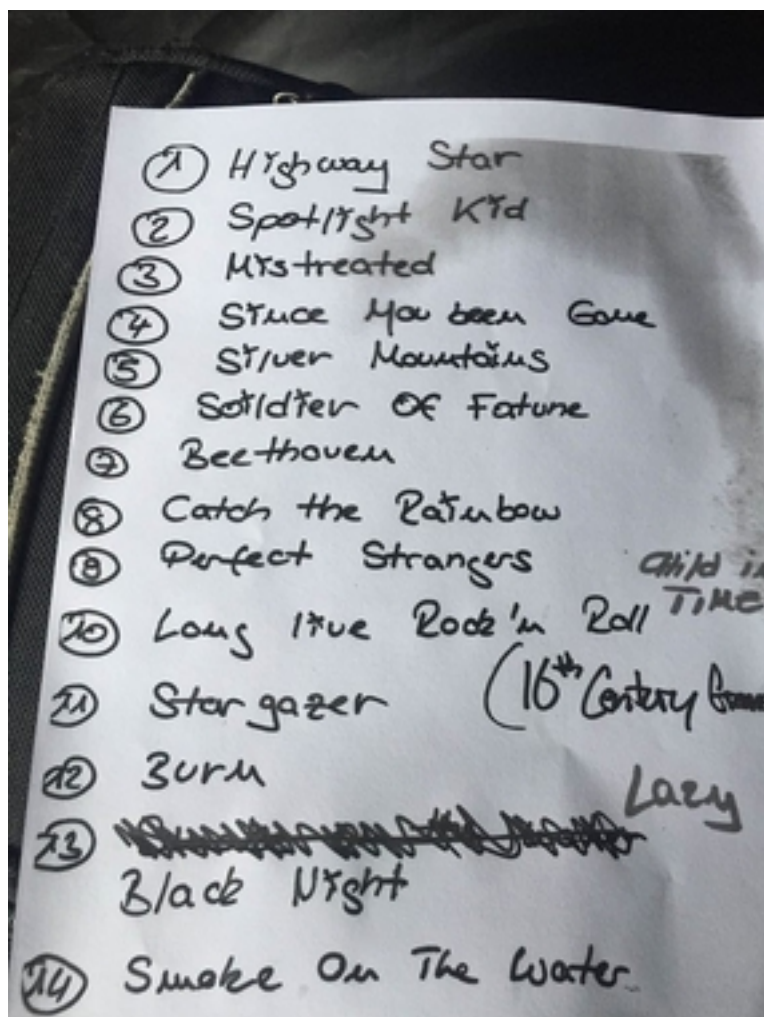 1 Highway Star
2 Spotlight Kid
3 Mistreated
4 Since You been Gone
5 Silver Mountains
6 Soildier Of Fatune
7 Beethoven
8 Catch the Rainbow
8 Perfect Strangers
Child in
TIME
10 Long live Rock'n Roll
11 Stargazer (16th Century
12 Burn
Lazy
13
Black Night
14 Smoke On The Water